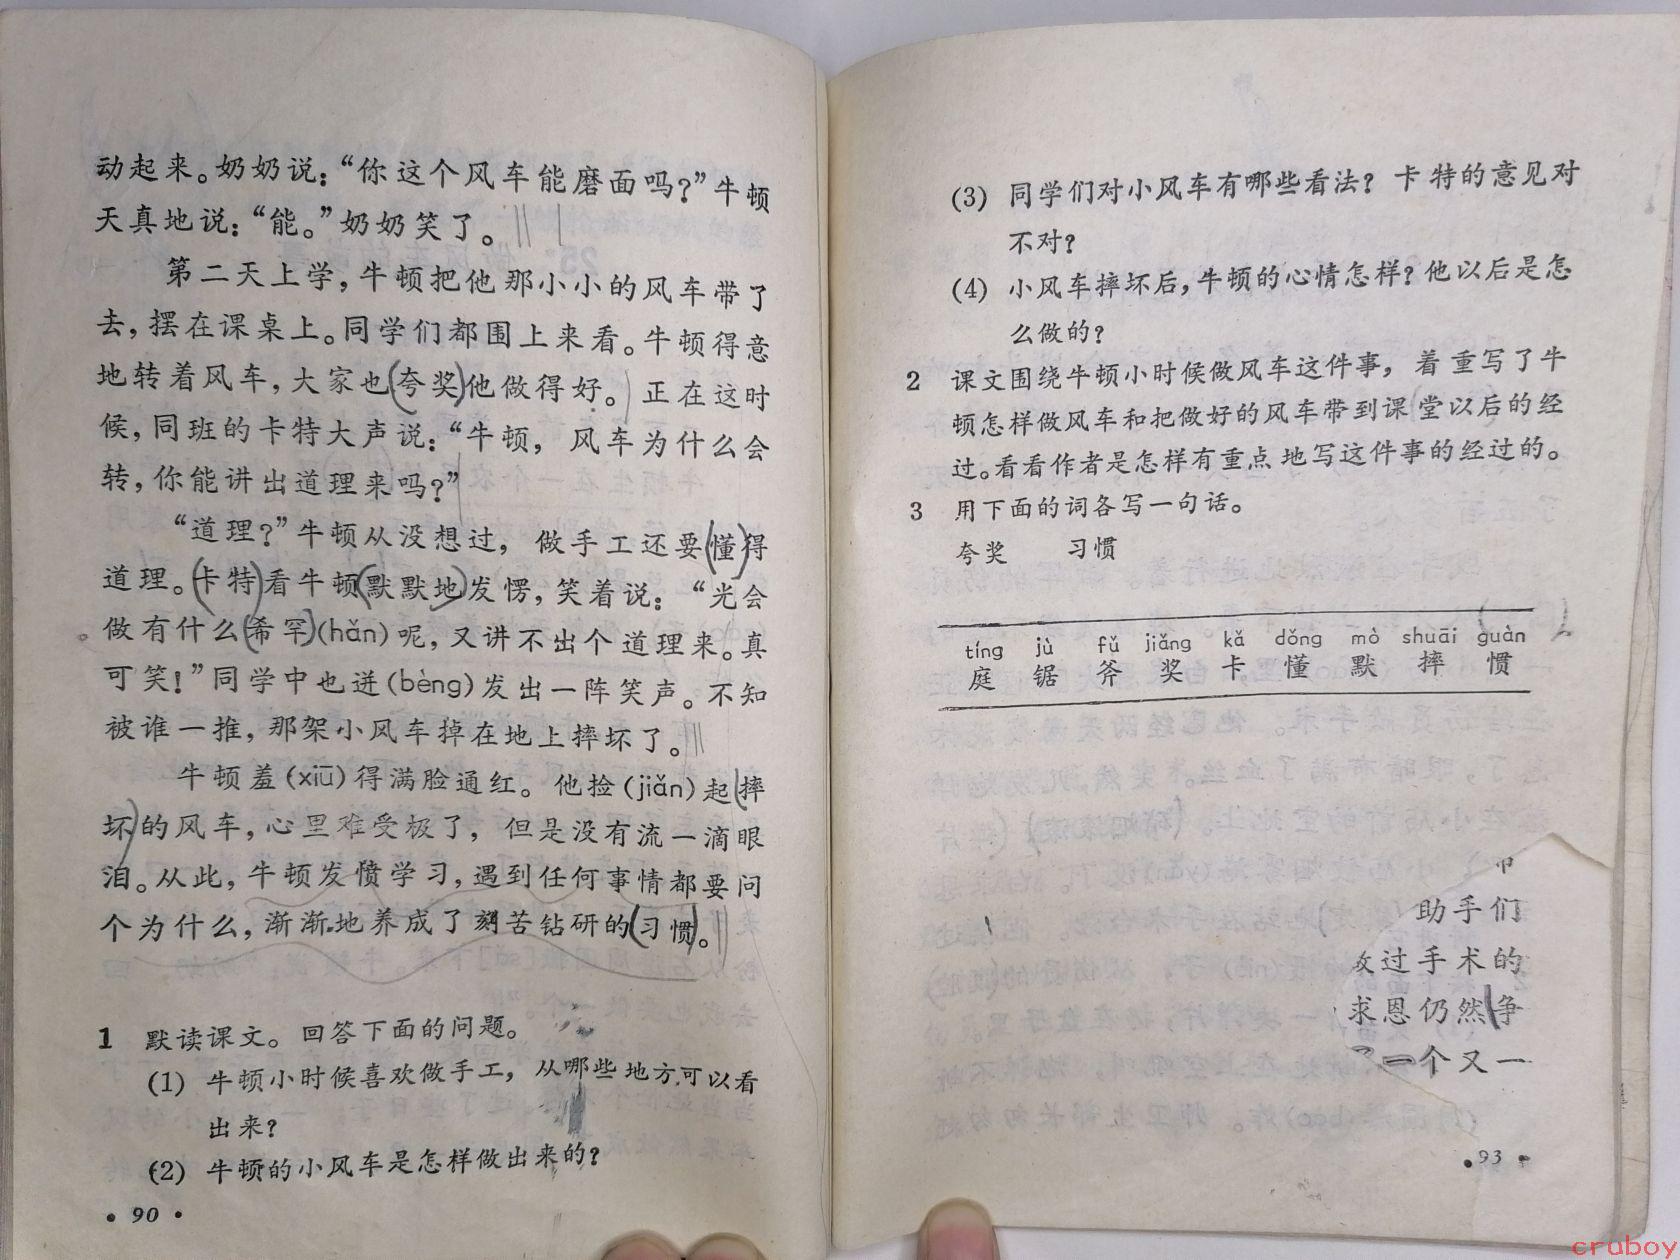 动起来。奶奶说：“你这个风车能磨面吗？”牛顿
天真地说：“能。”奶奶笑了。
第二天上学，牛顿把他那小小的风车带了
去，摆在课桌上。同学们都围上来看。牛顿得意
地转着风车，大家也(夸奖)他做得好。正在这时
候，同班的卡特大声说：“牛顿，风车为什么会
转，你能讲出道理来吗？”
“道理？”牛顿从没想过，做手工还要(懂)得
道理。(卡特)看牛顿(默默地)发愣，笑着说：“光会
做有什么(希罕)(hǎn)呢，又讲不出个道理来。真
可笑！”同学中也迸(bèng)发出一阵笑声。不知
被谁一推，那架小风车掉在地上摔坏了。
牛顿羞(xiū)得满脸通红。他捡(jiǎn)起(摔
坏)的风车，心里难受极了，但是没有流一滴眼
泪。从此，牛顿发愤学习，遇到任何事情都要问
个为什么，渐渐地养成了刻苦钻研的(习惯)。
1 默读课文。回答下面的问题。
(1) 牛顿小时候喜欢做手工，从哪些地方可以看
出来？
(2) 牛顿的小风车是怎样做出来的？
• 90 •
(3) 同学们对小风车有哪些看法？卡特的意见对
不对？
(4) 小风车摔坏后，牛顿的心情怎样？他以后是怎
么做的？
2 课文围绕牛顿小时候做风车这件事，着重写了牛
顿怎样做风车和把做好的风车带到课堂以后的经
过。看看作者是怎样有重点地写这件事的经过的。
3 用下面的词各写一句话。
夸奖 习惯
tíng jù fǔ jiǎng kǎ dǒng mò shuāi guàn
庭 锯 斧 奖 卡 懂 默 摔 惯
助手们
过手术的
求恩仍然(争
一个又一
• 93 •
cruboy